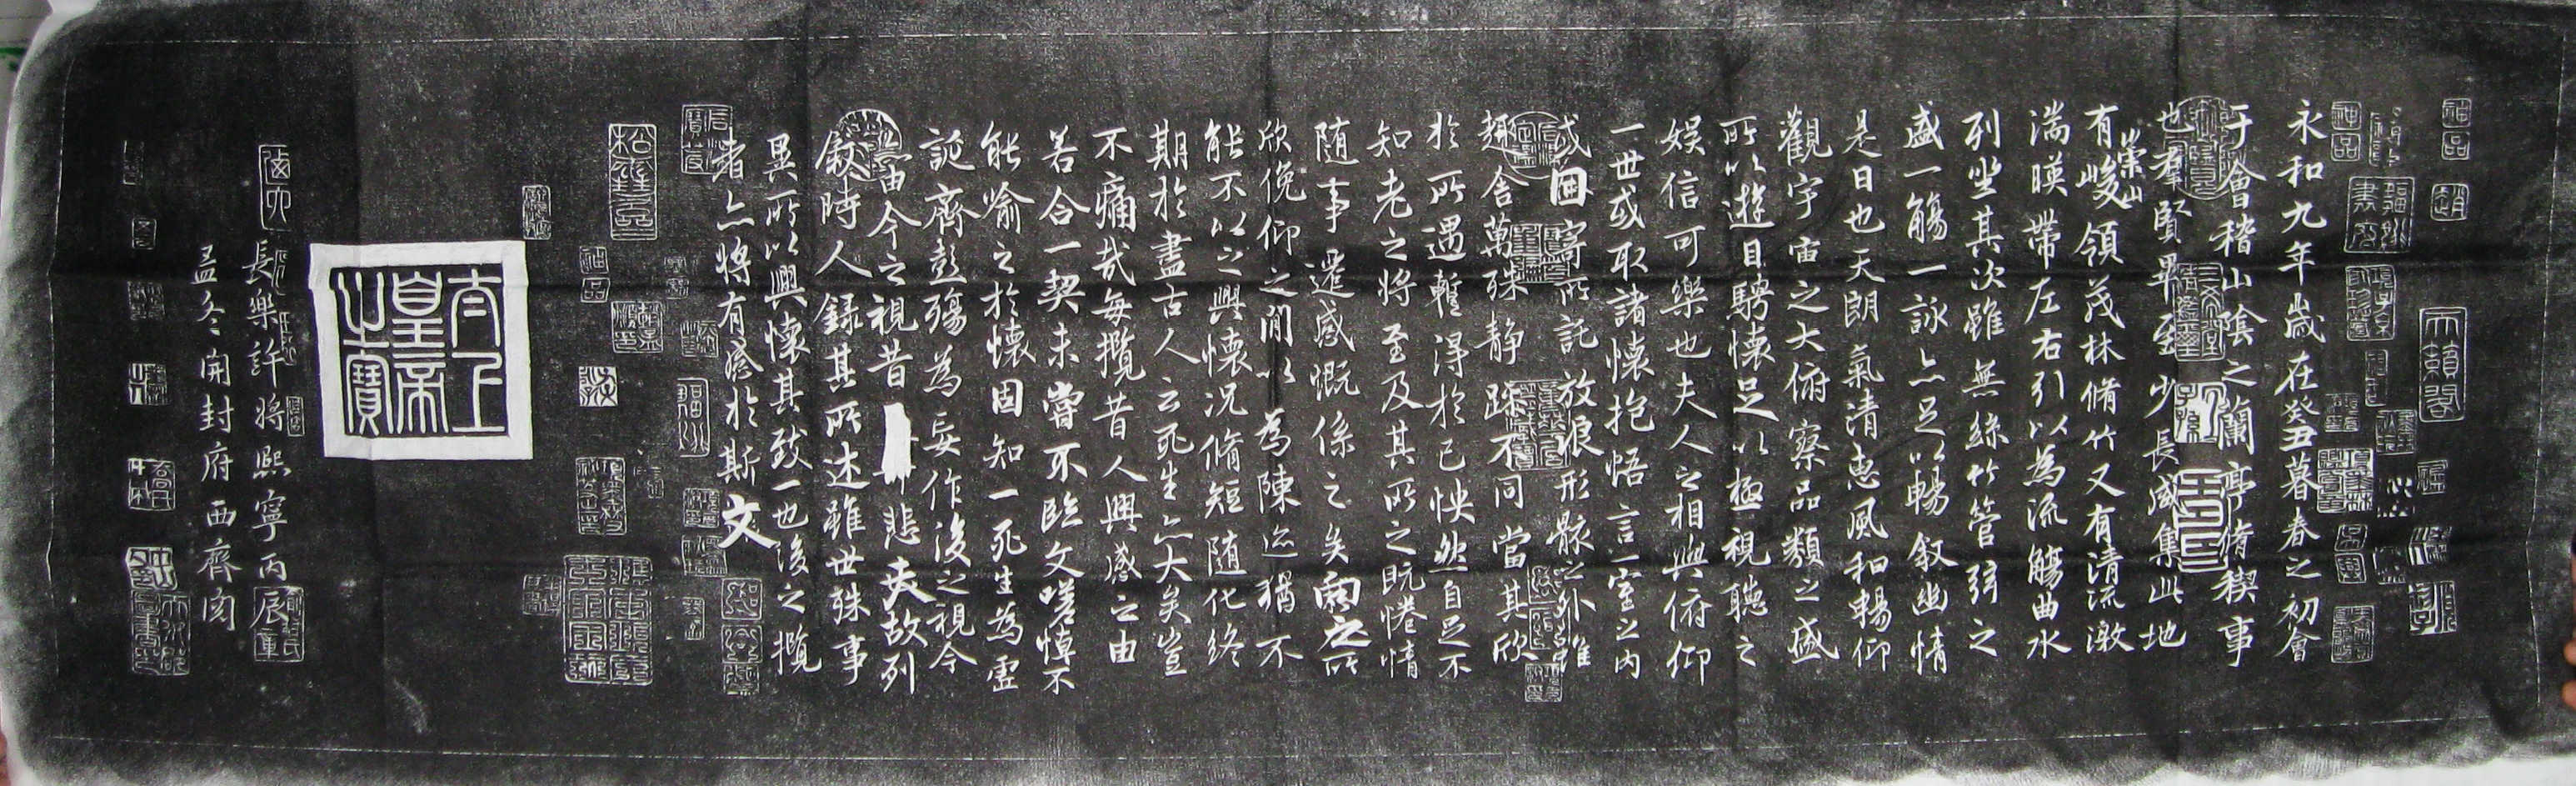 神品
天籟閣
神品
永和九年歲在癸丑暮春之初會
于會稽山陰之蘭亭脩稧事
也羣賢畢至少長咸集此地
有崇山峻領茂林脩竹又有清流激
湍暎帶左右引以為流觴曲水
列坐其次雖無絲竹管弦之
盛一觴一詠亦足以暢敘幽情
是日也天朗氣清惠風和暢仰
觀宇宙之大俯察品類之盛
所以遊目騁懷足以極視聽之
娛信可樂也夫人之相與俯仰
一世或取諸懷抱悟言一室之內
或因寄所託放浪形骸之外雖
趣舍萬殊靜躁不同當其欣
於所遇蹔得於己怏然自足不
知老之將至及其所之既惓情
隨事遷感慨係之矣向之所
欣俛仰之閒以為陳迹猶不
能不以之興懷況脩短隨化終
期於盡古人云死生亦大矣豈
不痛哉每攬昔人興感之由
若合一契未嘗不臨文嗟悼不
能喻之於懷固知一死生為虛
誕齊彭殤為妄作後之視今
亦由今之視昔悲夫故列
敘時人錄其所述雖世殊事
異所以興懷其致一也後之攬
者亦將有感於斯文
松雪齋
神品
太上皇帝之寶
長樂許將熙寧丙辰
孟冬開封府西齊閱